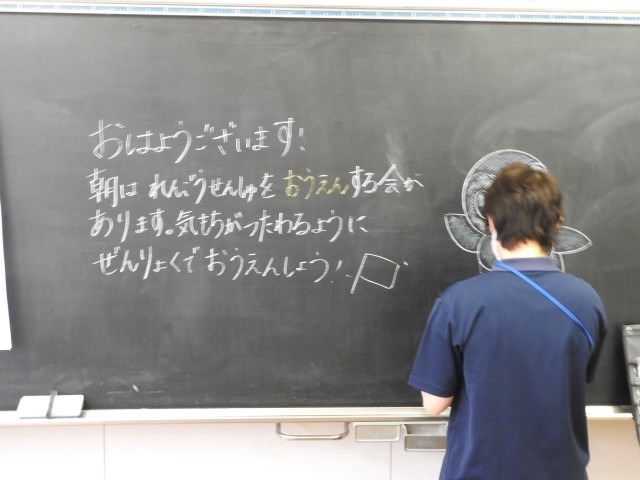 おはようございます!
朝は れんごうせんしゅを おうえんする会が
あります。気もちがつたわるように
ぜんりょくで おうえんしよう!